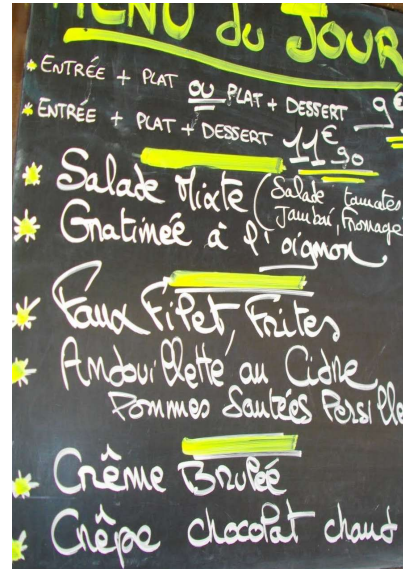 MENU du JOUR
ENTRÉE + PLAT OU PLAT + DESSERT 9€
ENTRÉE + PLAT + DESSERT 11€90
Salade Mixte (Salade tomates
Jambon, Fromage)
Gratinée à l'oignon
Faux Filet, Frites
Andouillette au Cidre
Pommes Sautées Persillé
Crême Brulée
Crêpe chocolat chaud